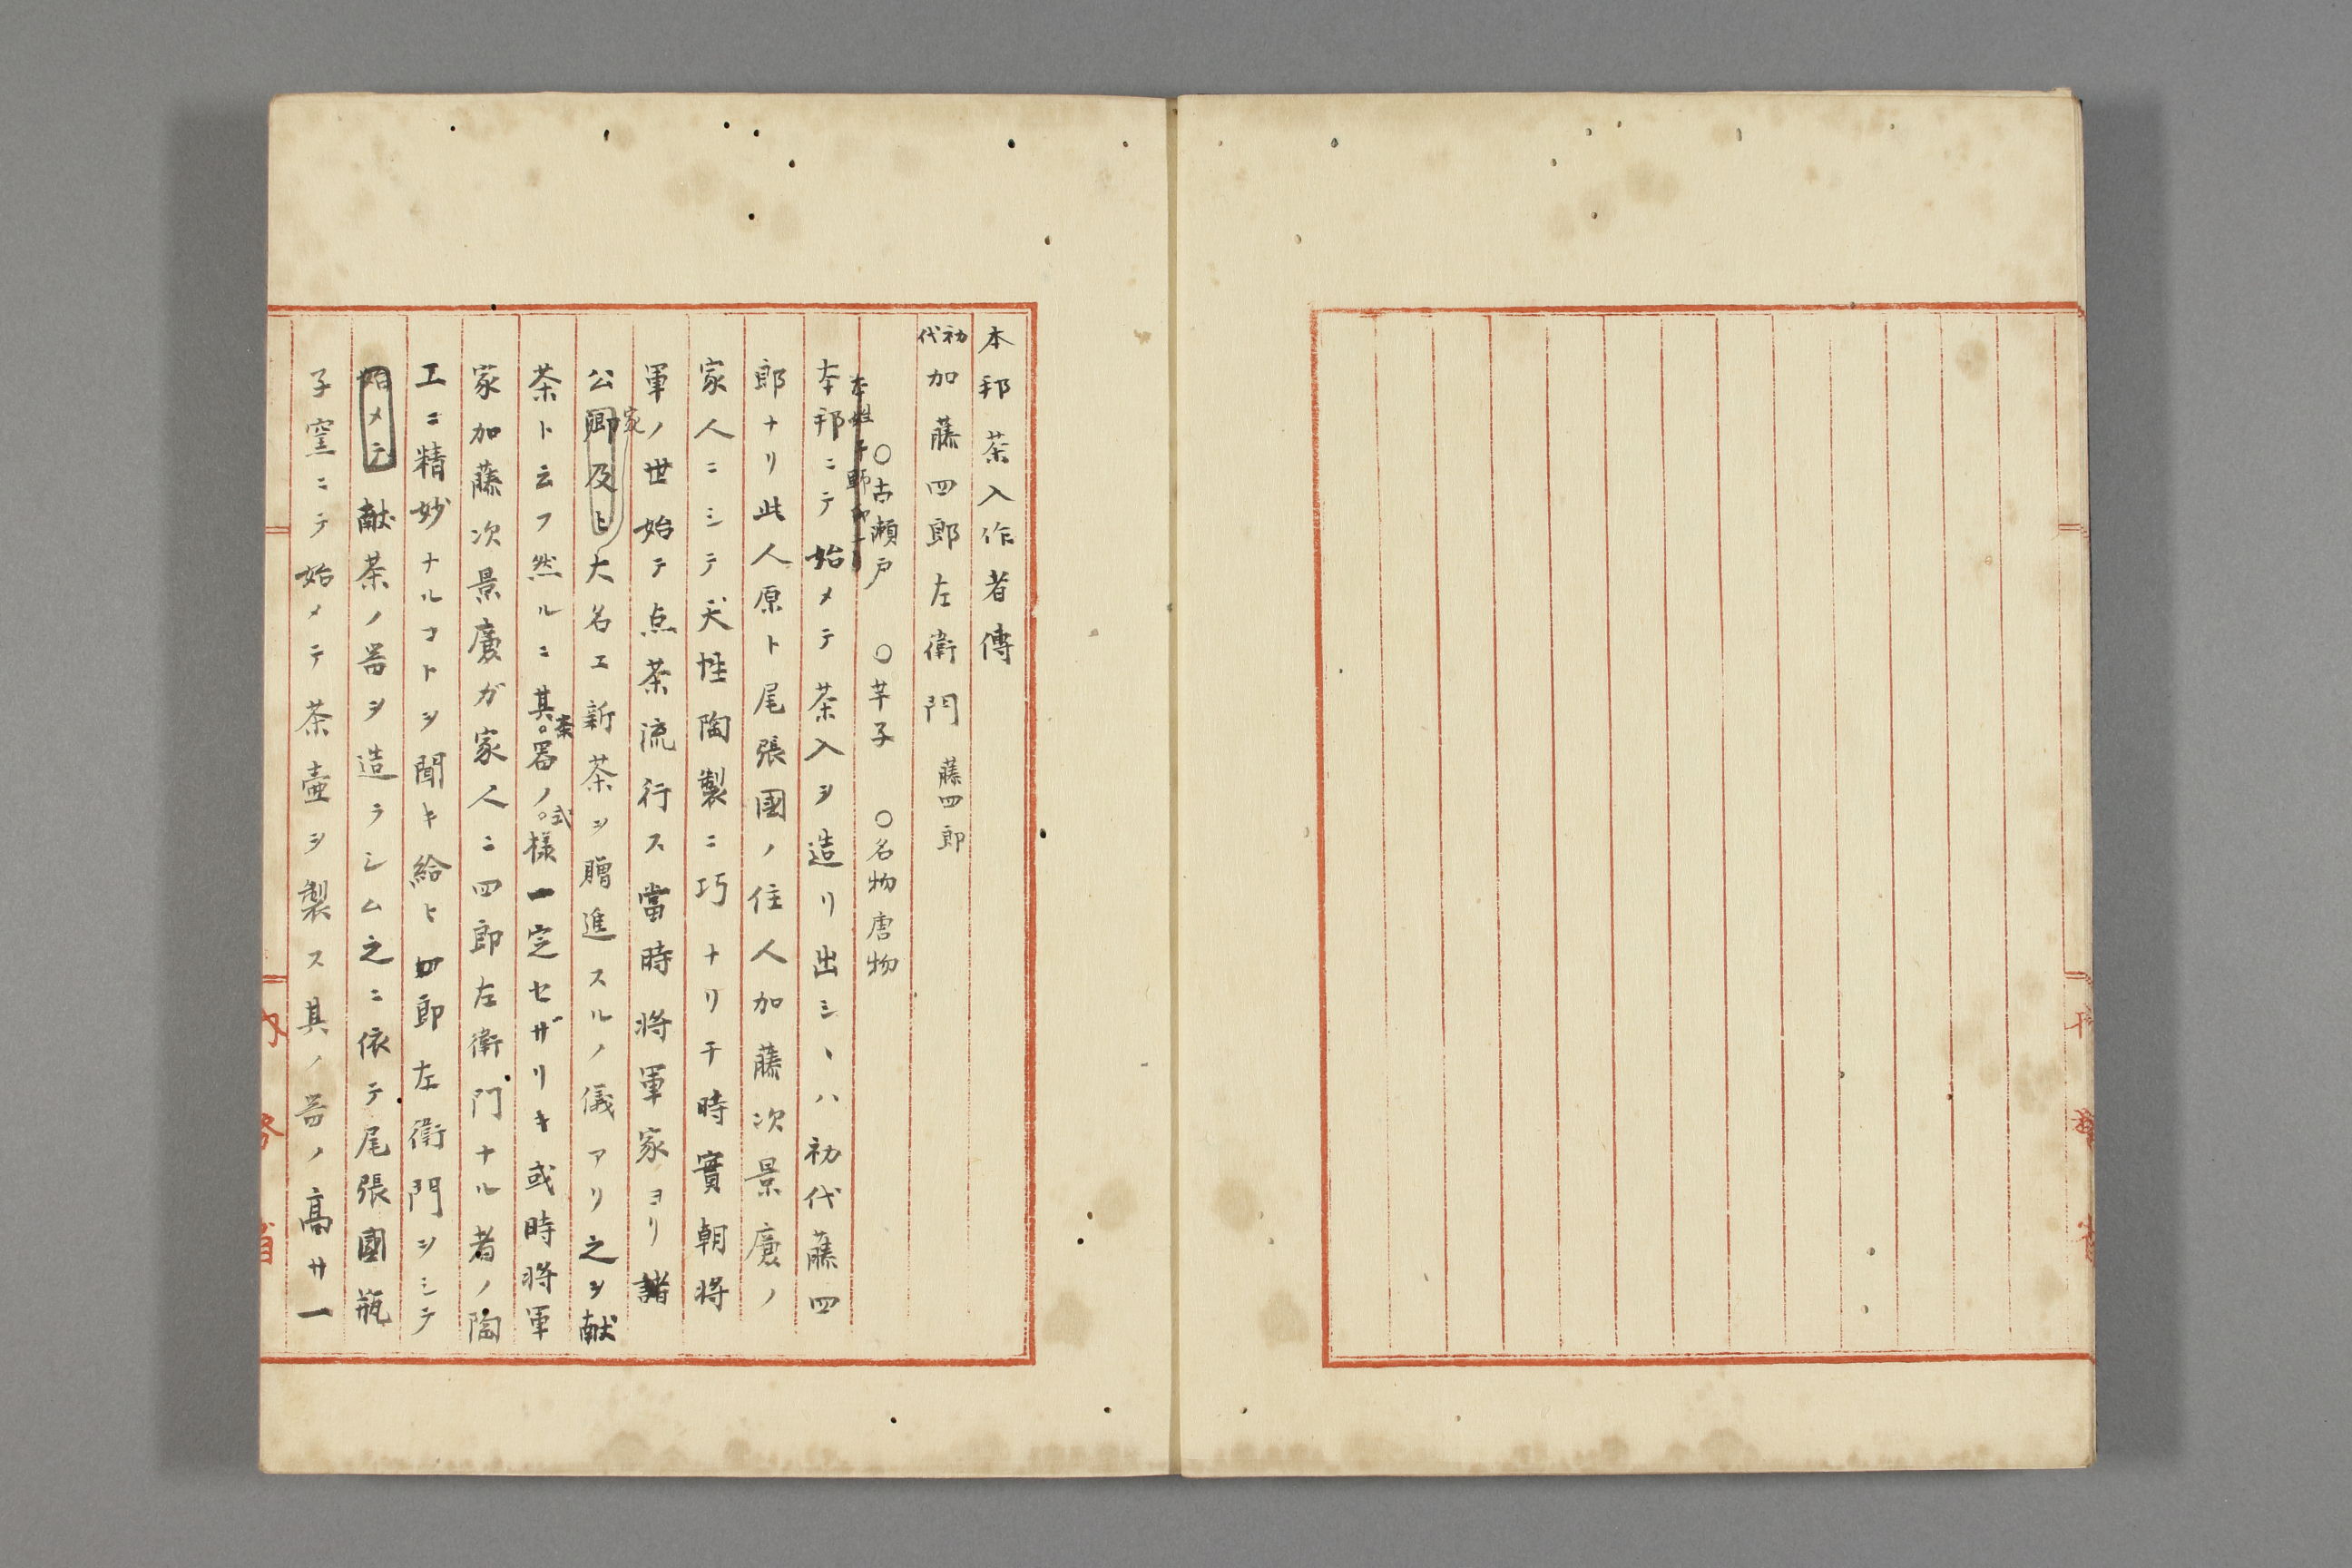 本邦茶入作者傳
初代 加藤四郎左衛門 藤四郎
○古瀬戸 ○芋子 ○名物唐物
本邦ニテ始メテ茶入ヲ造リ出シヽハ初代藤四
郎ナリ此人原ト尾張國ノ住人加藤次景廉ノ
家人ニシテ天性陶製ニ巧ナリ于時實朝將
軍ノ世始テ点茶流行ス當時将軍家ヨリ諸
公卿及ヒ大名エ新茶ヲ贈進スルノ儀アリ之ヲ献
家
茶ト云フ然ルニ其○器ノ○様一定セザリキ或時将軍
茶
式
家加藤次景廉ガ家人ニ四郎左衛門ナル者ノ陶
工ニ精妙ナルコトヲ聞キ給ヒ四郎左衛門ヲシテ
始メテ献茶ノ器ヲ造ラシム之ニ依テ尾張國瓶
子窯ニテ始メテ茶壷ヲ製ス其ノ器ノ高サ一
内務省